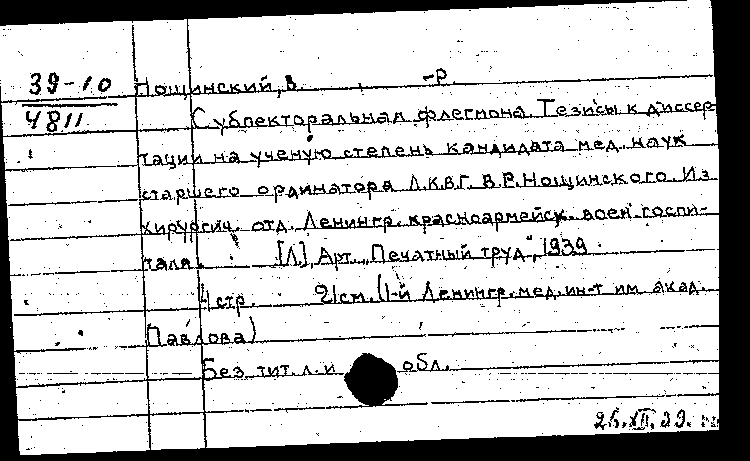 39-10
4811
Нощинский, В. -Р.
Субпекторальная флегмона. Тезисы к диссер-
тации на ученую степень кандидата мед. наук
старшего ординатора Л.К.В.Г. В.Р. Нощинского. Из
хирургич. отд. Ленингр. красноармейск. воен. госпи-
таля. [Л.], Арт. „Печатный труд", 1939.
4 стр. 21 см. (1-й Ленингр. мед. ин-т им акад.
Павлова)
Без тит. л. и обл.
26.XII.39.